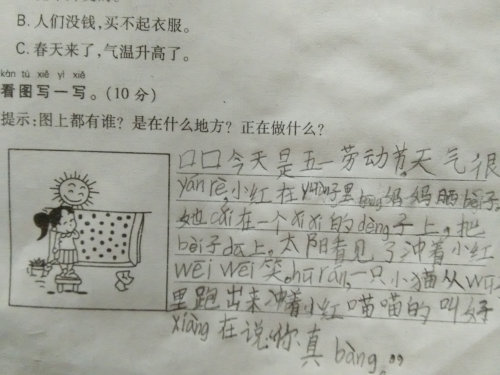 B. 人们没钱,买不起衣服。
C. 春天来了,气温升高了。
kàn tú xiě yi xiě
看图写一写。(10 分)
提示:图上都有谁？是在什么地方？正在做什么？
口口今天是五一劳动节,天气很
yán rè,小红在yuàn子里bāng妈妈晒被子。
她cǎi在一个ǎi ǎi的dèng子上,把
bèi子上。太阳看见了冲着小红
wēi wēi笑。hū rán,一只小猫从wū
里跑出来冲着小红喵喵的叫好
xiàng在说:你真bàng。”